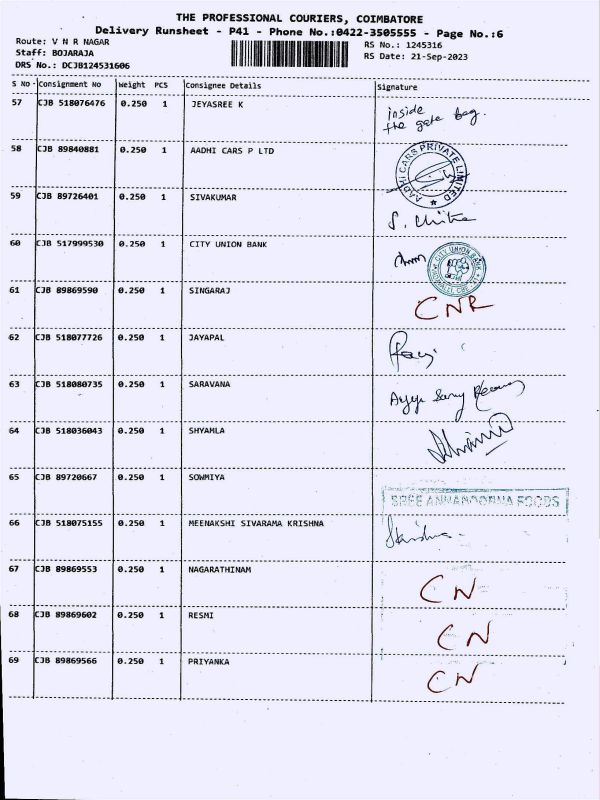 THE PROFESSIONAL COURIERS, COIMBATORE
Delivery Runsheet - P41 - Phone No.:0422-3505555 - Page No.:6
Route: V N R NAGAR
RS No.: 1245316
Staff: BOJARAJA
RS Date: 21-Sep-2023
DRS No.: DCJB124531606
S No Consignment No Weight PCS Consignee Details Signature
57 CJB 518076476 0.250 1 JEYASREE K inside
the gate bag.
58 CJB 89840881 0.250 1 AADHI CARS P LTD AADHI CARS PRIVATE LIMITED
59 CJB 89726401 0.250 1 SIVAKUMAR S. Chitra
60 CJB 517999530 0.250 1 CITY UNION BANK CITY UNION BANK
61 CJB 89869590 0.250 1 SINGARAJ CNR
62 CJB 518077726 0.250 1 JAYAPAL
63 CJB 518080735 0.250 1 SARAVANA
64 CJB 518036043 0.250 1 SHYAMLA
65 CJB 89720667 0.250 1 SOWMIYA SREE ANNAPOORNA FOODS
66 CJB 518075155 0.250 1 MEENAKSHI SIVARAMA KRISHNA
67 CJB 89869553 0.250 1 NAGARATHINAM CN
68 CJB 89869602 0.250 1 RESMI CN
69 CJB 89869566 0.250 1 PRIYANKA CN